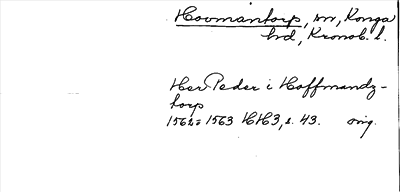 Hovmantorp, sn, Konga
hd, Kronob. l.
Her Peder i Hoffmandz-
torp
1562-1563 HH3, s. 43. orig.